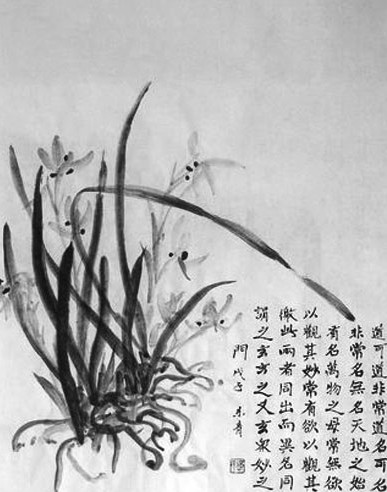 道可道非常道名可名
非常名無名天地之始
有名萬物之母常無欲
以觀其妙常有欲以觀其
徼此兩者同出而異名同
謂之玄玄之又玄衆妙之
門 戊子